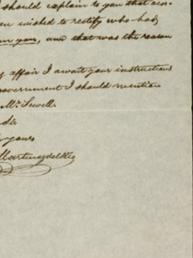 should explain to you that
wished to rectify who had
you, and that was the reason
affair I await your instructions
Government I should mention
Mr. Sewell
Sir
yours
Martinez del Rio